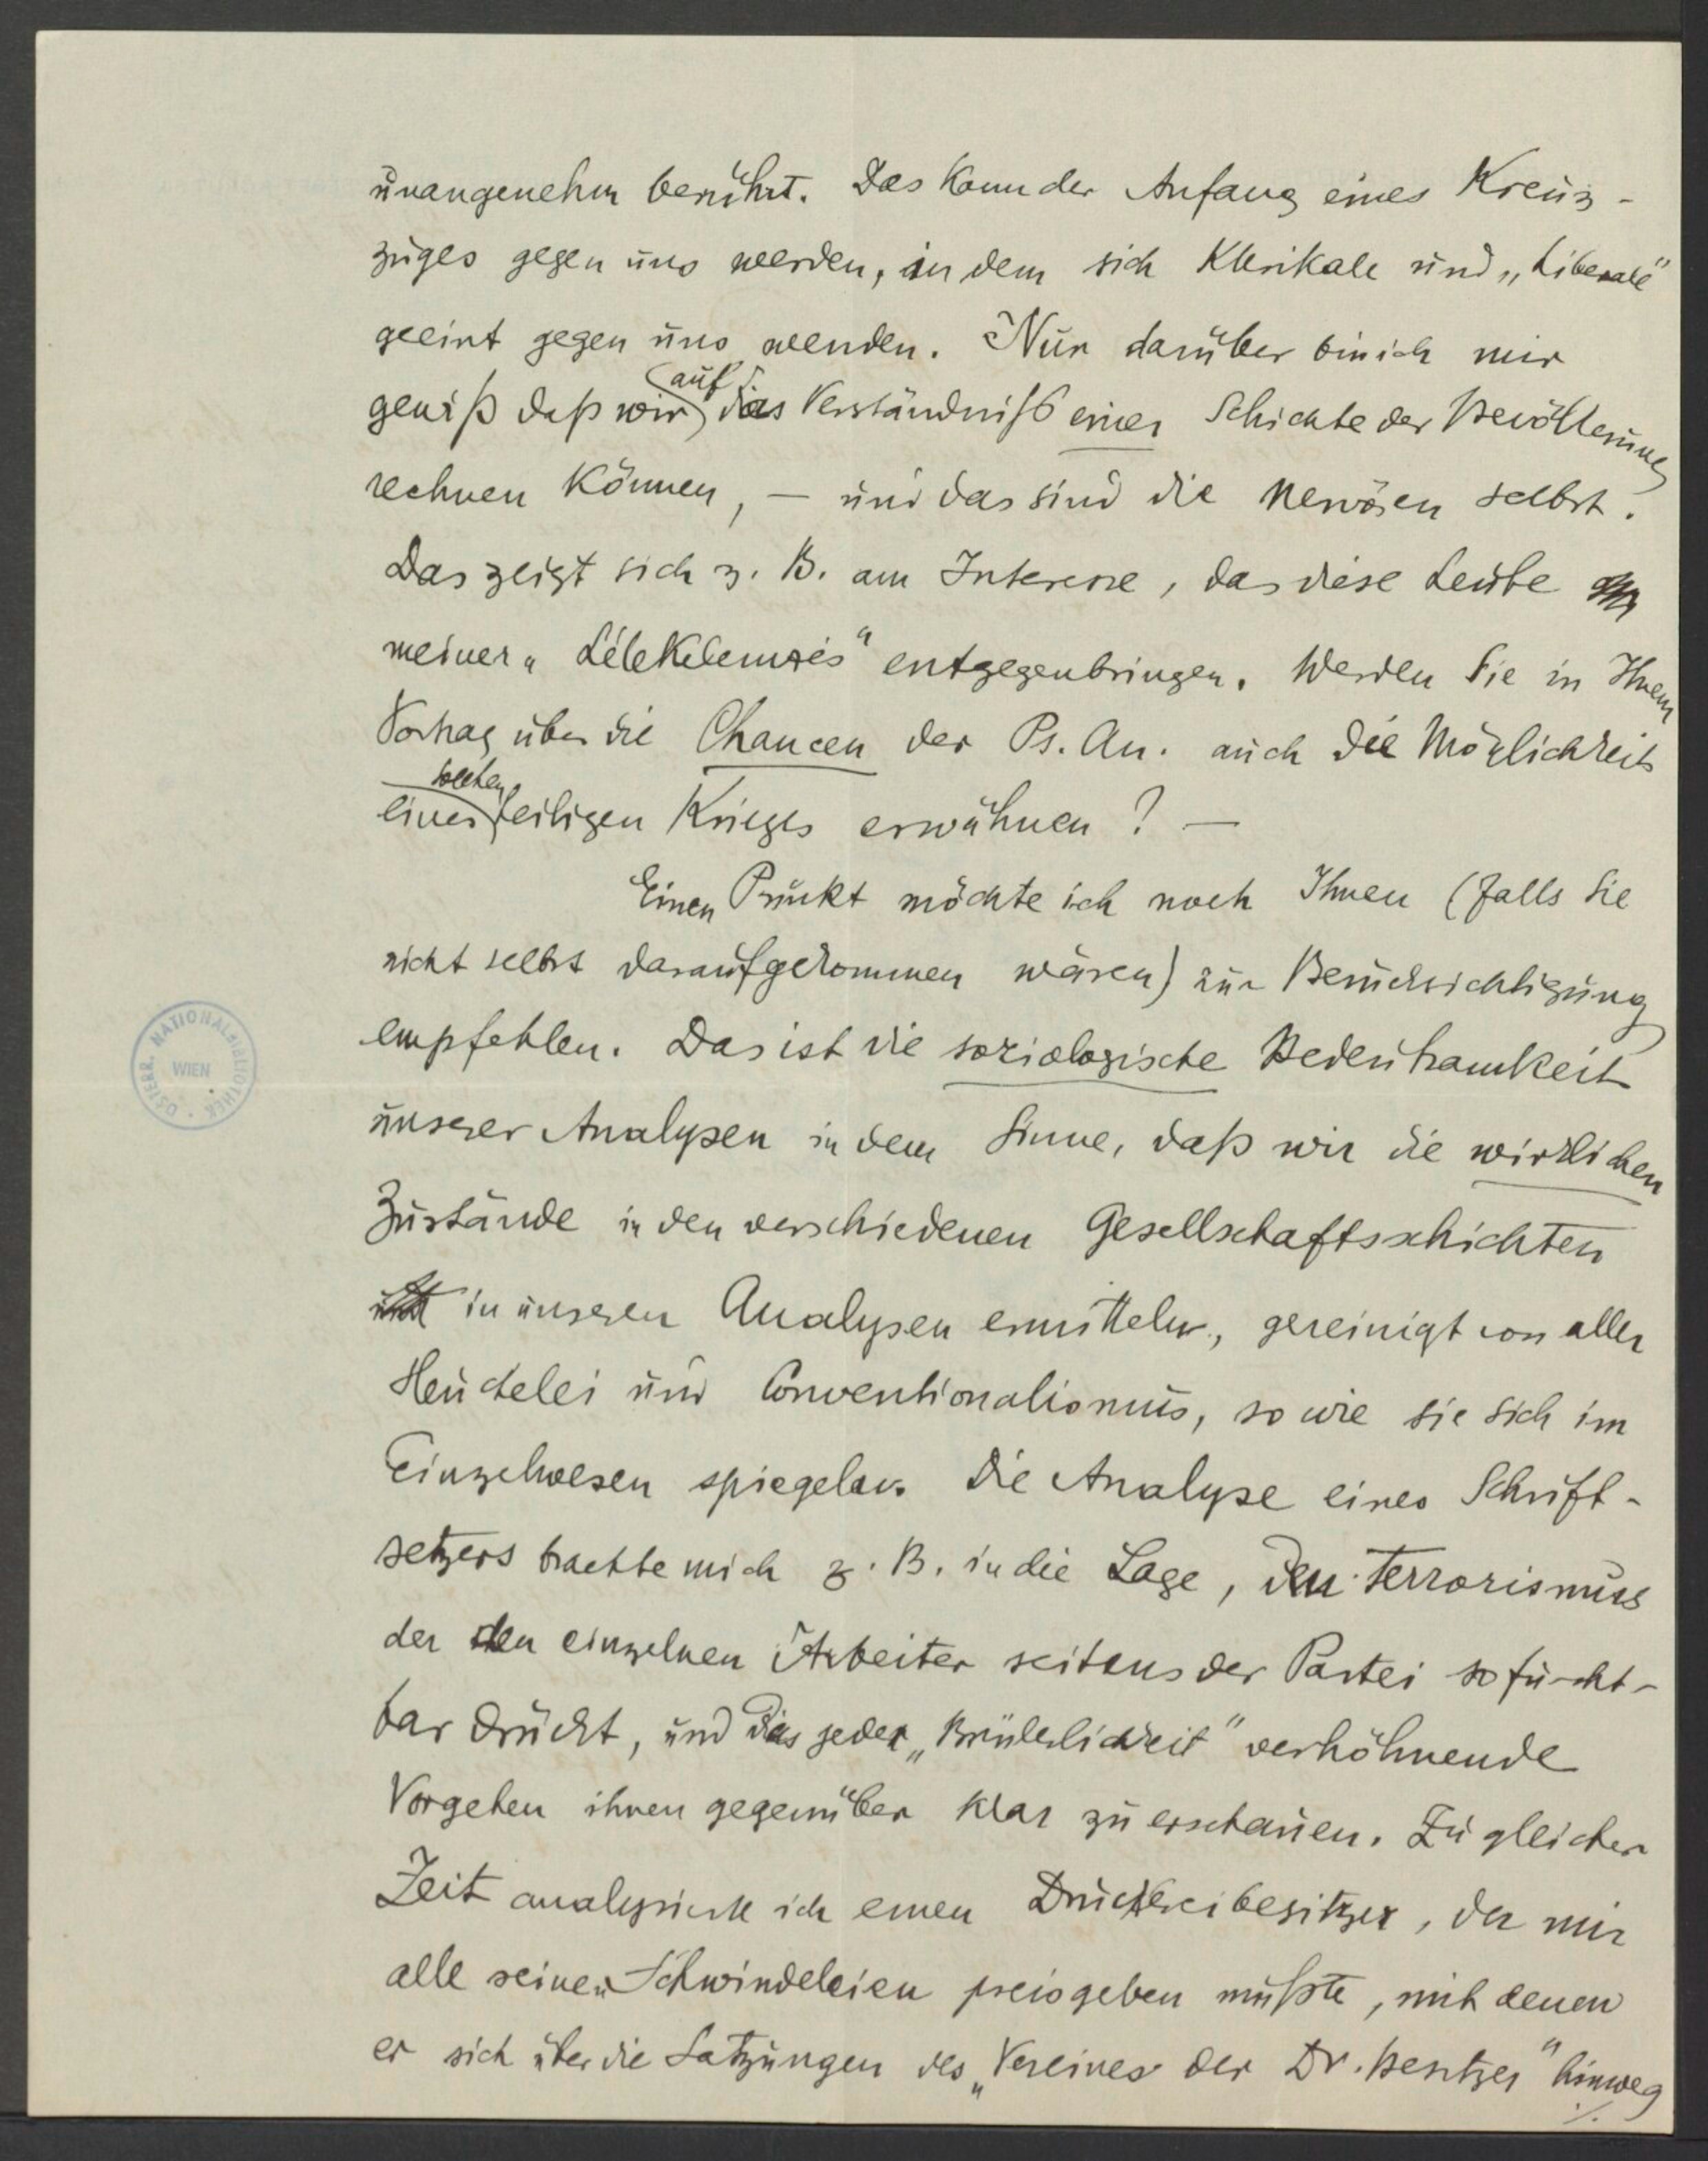 unangenehm berührt. Das kann der Anfang eines Kreuz-
zuges gegen uns werden, in dem sich Klerikale und „Liberale“
geeint gegen uns wenden. Nur darüber bin ich mir
gewiß daß wir auf das Verständniß einer Schichte der Bevölkerung
rechnen können, — und das sind die Nervösen selbst.
Das zeigt sich z. B. am Interesse, das diese Leute
meiner „Lélekelemzés“ entgegenbringen. Werden Sie in Ihrem
Vortrag über die Chancen der Ps. An. auch die Möglichkeit
eines solchen heiligen Krieges erwähnen? —
Einen Punkt möchte ich noch Ihnen (falls Sie
nicht selbst daraufgekommen wären) zur Berücksichtigung
empfehlen. Das ist die soziologische Bedeutsamkeit
unserer Analysen in dem Sinne, daß wir die wirklichen
Zustände in den verschiedenen Gesellschaftsschichten
in unseren Analysen ermitteln, gereinigt von aller
Heuchelei und Conventionalismus, so wie sie sich im
Einzelwesen spiegeln. Die Analyse eines Schrift-
setzers brachte mich z. B. in die Lage, den Terrorismus
der den einzelnen Arbeiter seitens der Partei so furcht-
bar drückt, und das jeder „Brüderlichkeit“ verhöhnende
Vorgehen ihnen gegenüber klar zu erschauen. Zu gleicher
Zeit analysierte ich einen Druckereibesitzer, der mir
alle seinen Schwindeleien preisgeben mußte, mit denen
er sich über die Satzungen des „Vereines der Dr. besitzer“ hinweg
./.
ÖSTERR. NATIONALBIBLIOTHEK
WIEN